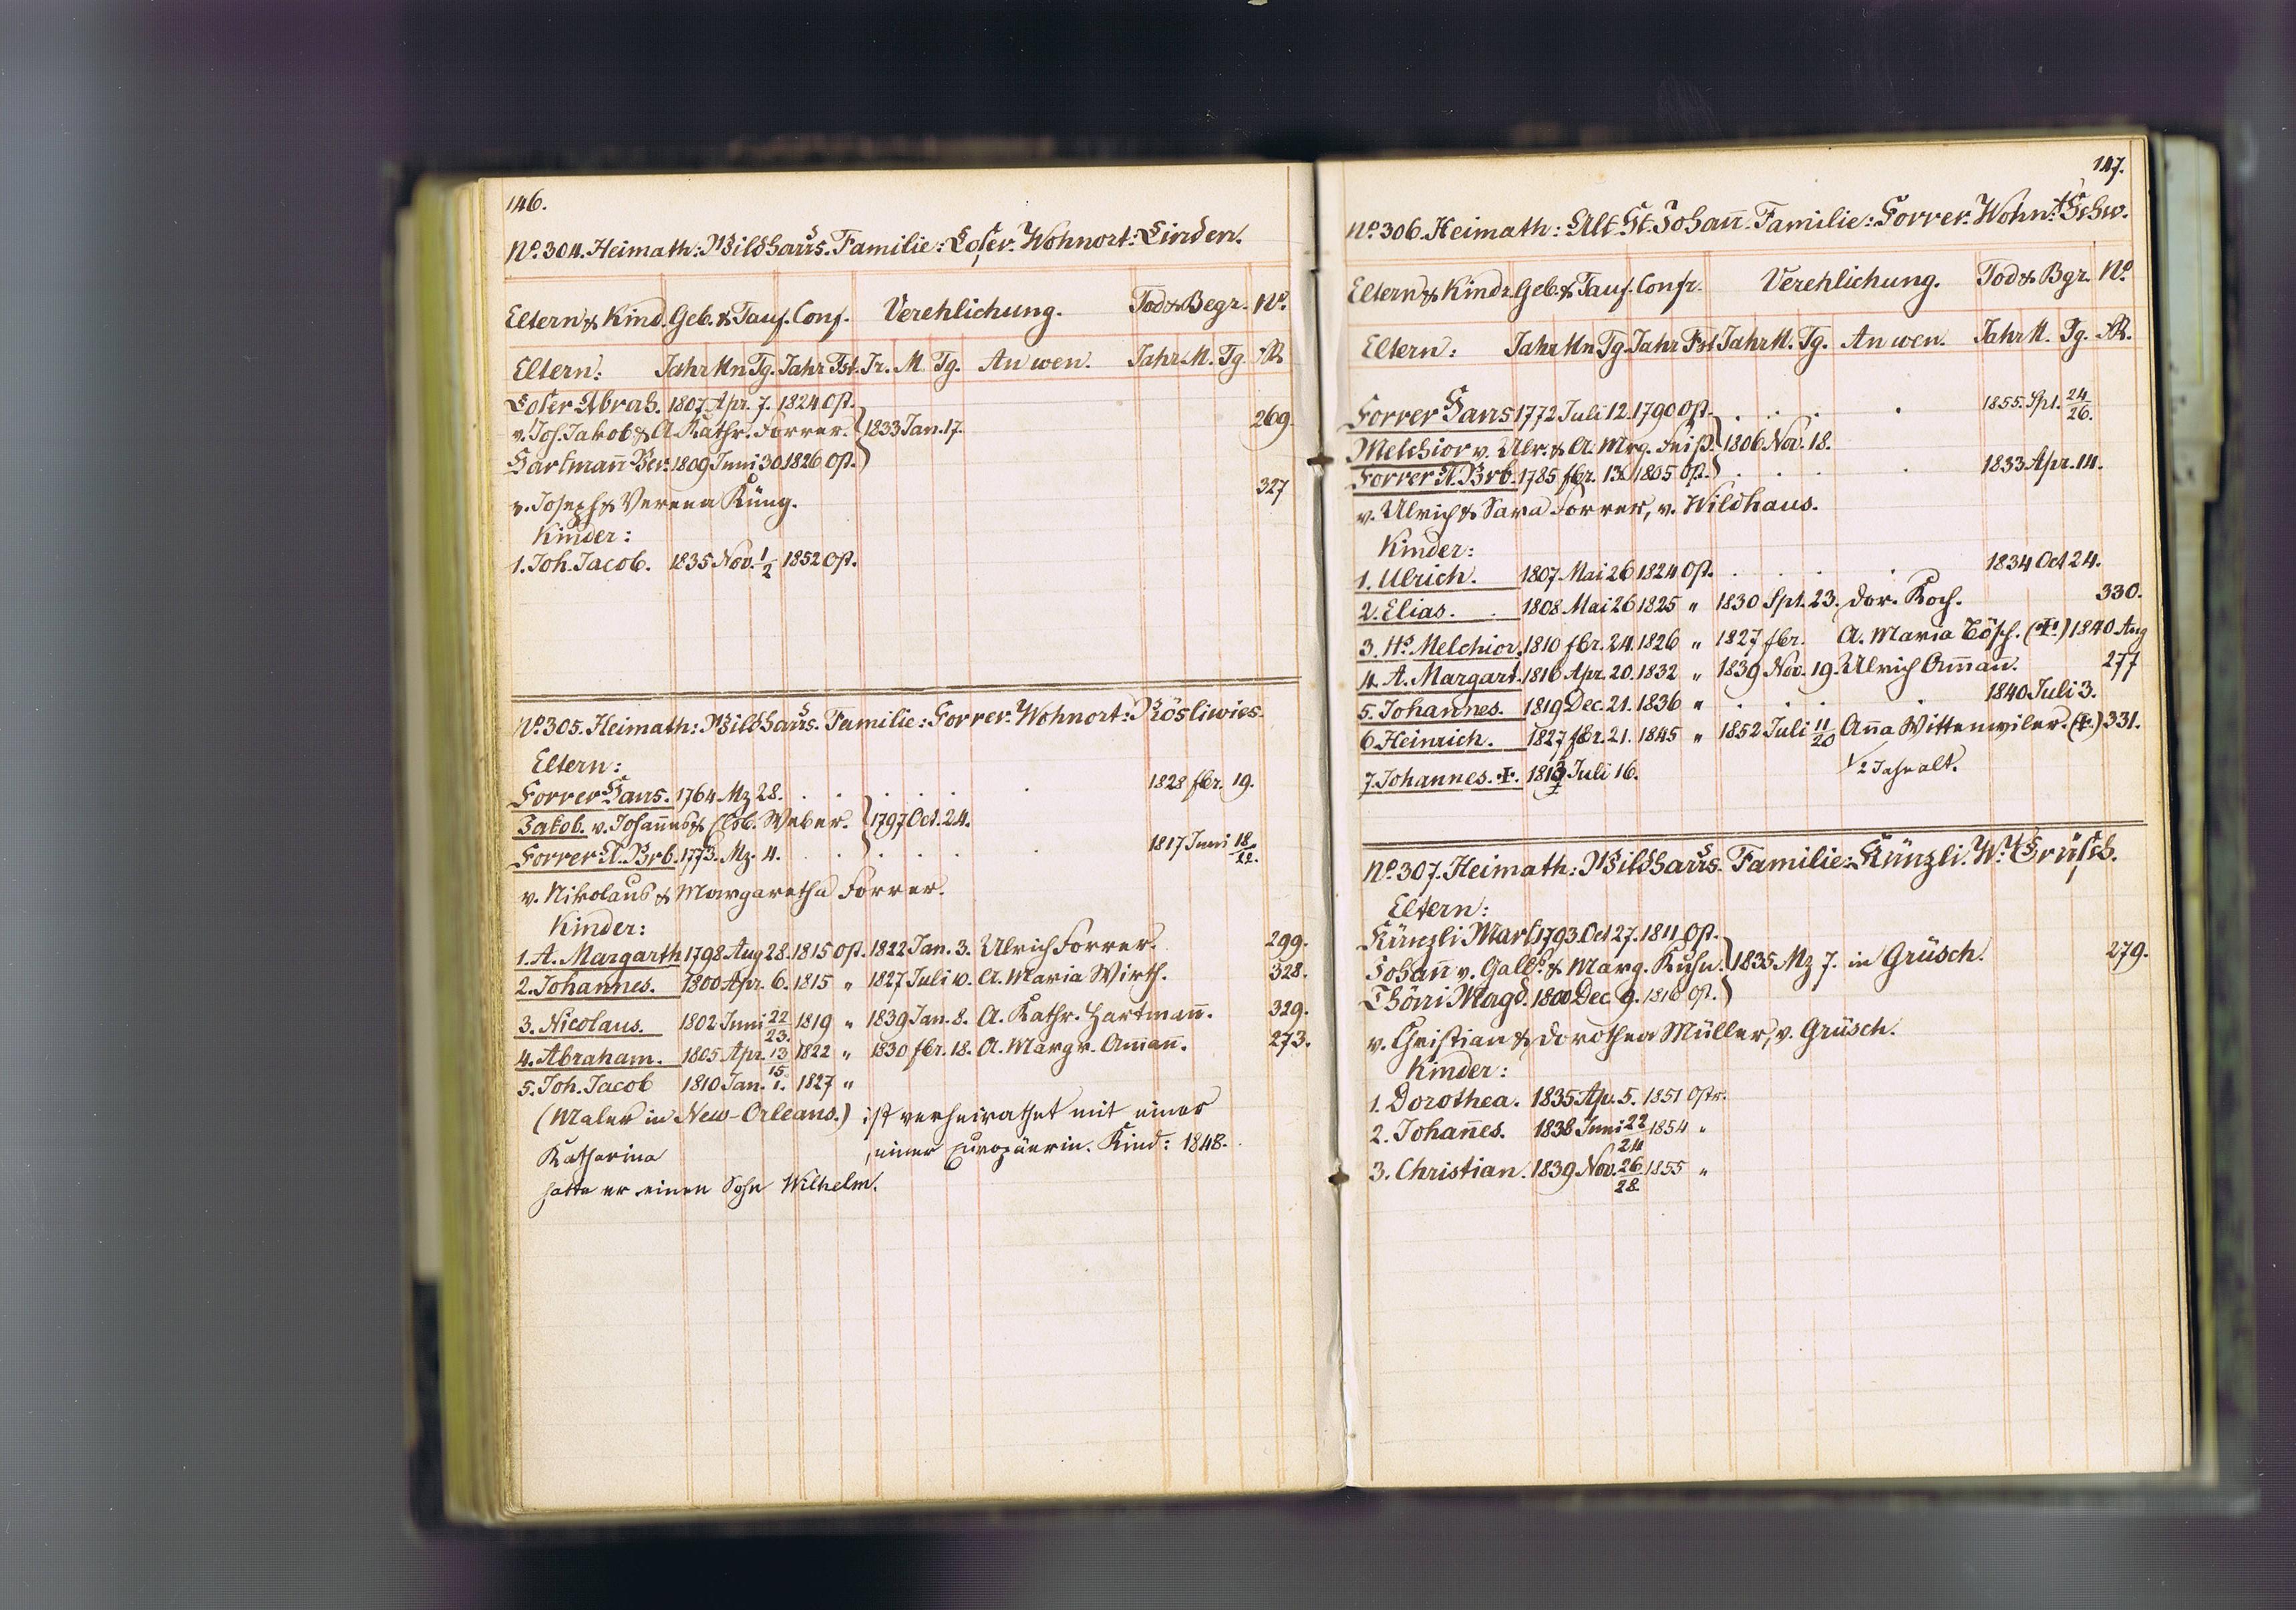 146.
No. 304. Heimath: Wildhaus. Familie: Loser. Wohnort: Linden.
Eltern & Kind. Geb. & Tauf. Conf. Verehlichung. Tod & Begr. No.
Eltern: Jahr Mn Tg. Jahr Fst. Jr. M. Tg. An wen. Jahr. M. Tg. R.
Loser Abrah. 1807 Apr. 7. 1824 Ost.
v. Jos. Jakob & A. Kathr. Forrer. 1833 Jan. 17. 269.
Hartmañ Ver. 1809 Juni 30 1826 Ost.
v. Joseph & Verena Küng. 327
Kinder:
1. Joh. Jacob. 1835 Nov. 1/2 1852 Ost.
No. 305. Heimath: Wildhaus. Familie: Forrer. Wohnort: Rösliwies.
Eltern:
Forrer Hans. 1764 Mz 28. . . . . . . 1828 fbr. 19.
Jakob. v. Johannes & Elsb. Weber. 1797 Oct. 24.
Forrer A. Brb. 1773. Mz. 4. . . . . . 1817 Juni 18/22.
v. Nikolaus & Margaretha Forrer.
Kinder:
1. A. Margarth 1798 Aug 28. 1815 Ost. 1822 Jan. 3. Ulrich Forrer. 299.
2. Johannes. 1800 Apr. 6. 1815 " 1827 Juli 10. A. Maria Wirth. 328.
3. Nicolaus. 1802 Juni 22/23. 1819 " 1839 Jan. 8. A. Kathr. Hartmañ. 329.
4. Abraham. 1805 Apr. 13/15 1822 " 1830 fbr. 18. A. Margr. Amañ. 273.
5. Joh. Jacob 1810 Jan. 1. 1827 "
(Maler in New-Orleans.) ist verheirathet mit einer
Katharina , einer Europäerin. Kind: 1848.
hatte er einen Sohn Wilhelm.
147.
No. 306. Heimath: Alt St. Johañ. Familie: Forrer. Wohn.t Schw.
Eltern & Kindr. Geb. & Tauf. Confr. Verehlichung. Tod & Bgr. No
Eltern: Jahr Mn Tg. Jahr Fst Jahr M. Tg. An wen. Jahr M. Tg. R.
Forrer Hans 1772 Juli 12. 1790 Ost. . . . . 1855. Spt. 24/26.
Melchior v. Ulr. & A. Mrg. 1806 Nov. 18.
Forrer A. Brb. 1785 fbr. 13. 1805 Ost. . . . 1833 Apr. 14.
v. Ulrich & Sara Forrer, v. Wildhaus.
Kinder:
1. Ulrich. 1807. Mai 26 1824 Ost. . . . . 1834 Oct 24.
2. Elias. . 1808. Mai 26 1825 " 1830 Spt. 23. Dor. Koch. 330.
3. Hs. Melchior. 1810 fbr. 24. 1826 " 1827 fbr. A. Maria Bösch. (+!) 1840 Aug
4. A. Margart. 1816 Apr. 20. 1832 " 1839 Nov. 19. Ulrich Amañ. 277
5. Johannes. 1819 Dec. 21. 1836 " . . . . 1840 Juli 3.
6. Heinrich. 1827 fbr. 21. 1845 " 1852 Juli 11/20 Aña Wittenwiler. (+.) 331.
7. Johannes. +. 1813 Juli 16. 1/2 Jahr alt.
No. 307. Heimath: Wildhaus. Familie: Künzli. W.t Grüsch.
Eltern:
Künzli Mart 1793. Oct 27. 1811 Ost.
Johañ v. Galls. & Marg. Kuhn. 1835 Mz 7. in Grüsch. 279.
Thöni Magd. 1800 Dec. 9. 1816 Ost.
v. Christian & Dorothea Müller, v. Grüsch.
Kinder:
1. Dorothea. 1835 Ap. 5. 1851 Ostr.
2. Johañes. 1838 Juni 22/24 1854 "
3. Christian. 1839 Nov. 26/28. 1855 "